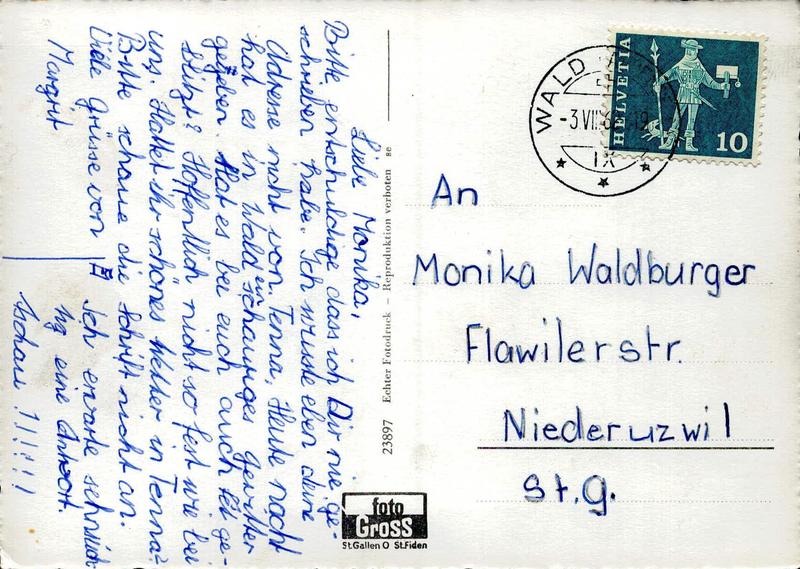 Liebe Monika,
Bitte entschuldige dass ich Dir nie ge-
schrieben habe. Ich wusste eben deine
Adresse nicht von Tenna. Heute nacht
hat es in Wald ein schauriges gewitter
gegeben. Hat es bei euch auch so ge-
blitzt? Hoffentlich nicht so fest wie bei
uns. Hattet ihr schönes Wetter in Tenna?
Bitte schaue die Schrift nicht an.
Viele Grüsse von
Margrit
Ich erwarte sehnlich-
eine Antwort
Tschau !!!!!!
23897 Echter Fotodruck – Reproduktion verboten
foto
Gross
St.Gallen O St.Fiden
WALD
-3.VII.
IX
HELVETIA
10
An
Monika Waldburger
Flawilerstr.
Niederuzwil
St.G.